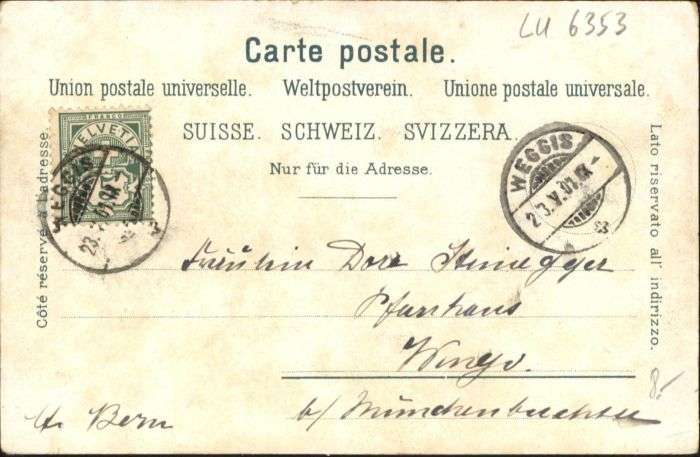 LU 6353
Carte postale.
Union postale universelle. Weltpostverein. Unione postale universale.
SUISSE. SCHWEIZ. SVIZZERA.
Nur für die Adresse.
Côté réservé à l'adresse.
Lato riservato all' indirizzo.
FRANCO
HELVETIA
WEGGIS
23.
WEGGIS
23.V.01.IX-
Fräulein Dora Steinegger
Pfarrhaus
b/ Münchenbuchsee
Kt. Bern
8.-